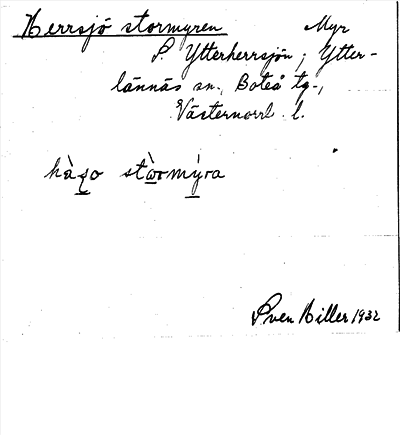 Herrsjö stormyren Myr
S. Ytterherrsjön; Ytter-
lännäs sn., Boteå tg.,
Västernorrl. l.
stòrmýra
Sven Hiller 1932